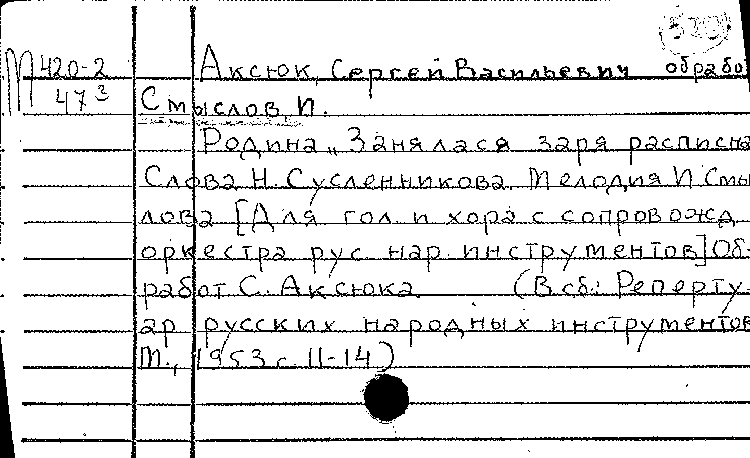 М 420-2 Аксюк, Сергей Васильевич обрабо
47³ Смыслов И.
Родина „Занялася заря расписна
Слова Н. Сусленникова. Мелодия И Смы
лова [Для гол. и хора с сопровожд.
оркестра рус. нар. инструментов] Об-
работ С. Аксюка (В сб: Реперту-
ар русских народных инструментов
М., 1953 с 11-14)